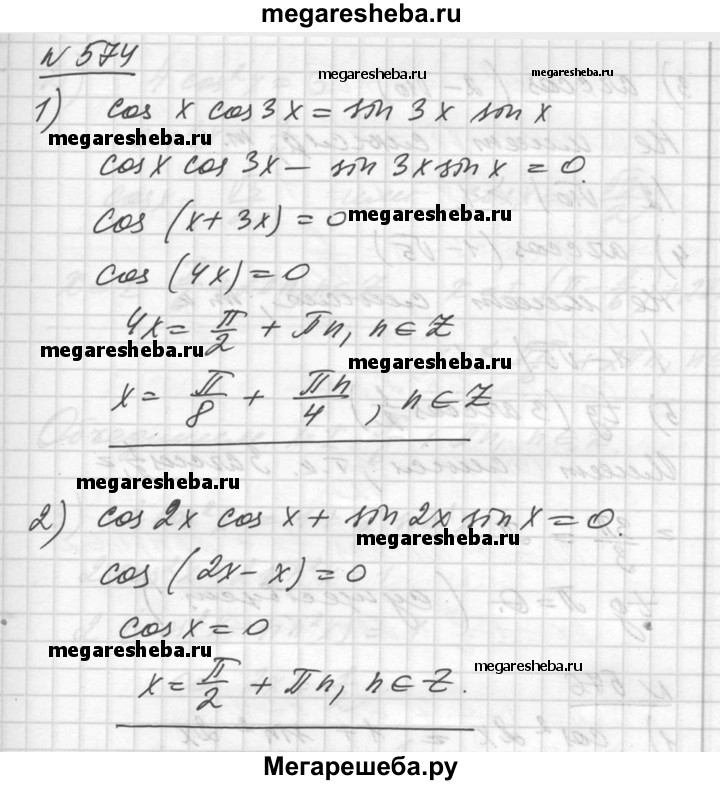 megaresheba.ru
N 574
megaresheba.ru megaresheba.ru
1) cos x cos 3x = sin 3x sin x
megaresheba.ru
cos x cos 3x − sin 3x sin x = 0.
cos (x + 3x) = 0 megaresheba.ru
cos (4x) = 0
4x = π/2 + πn, n ∈ Z
megaresheba.ru megaresheba.ru
x = π/8 + πn/4, n ∈ Z
megaresheba.ru
2) cos 2x cos x + sin 2x sin x = 0.
megaresheba.ru
cos (2x − x) = 0
cos x = 0
megaresheba.ru megaresheba.ru
x = π/2 + πn, n ∈ Z.
Мегарешеба.ру